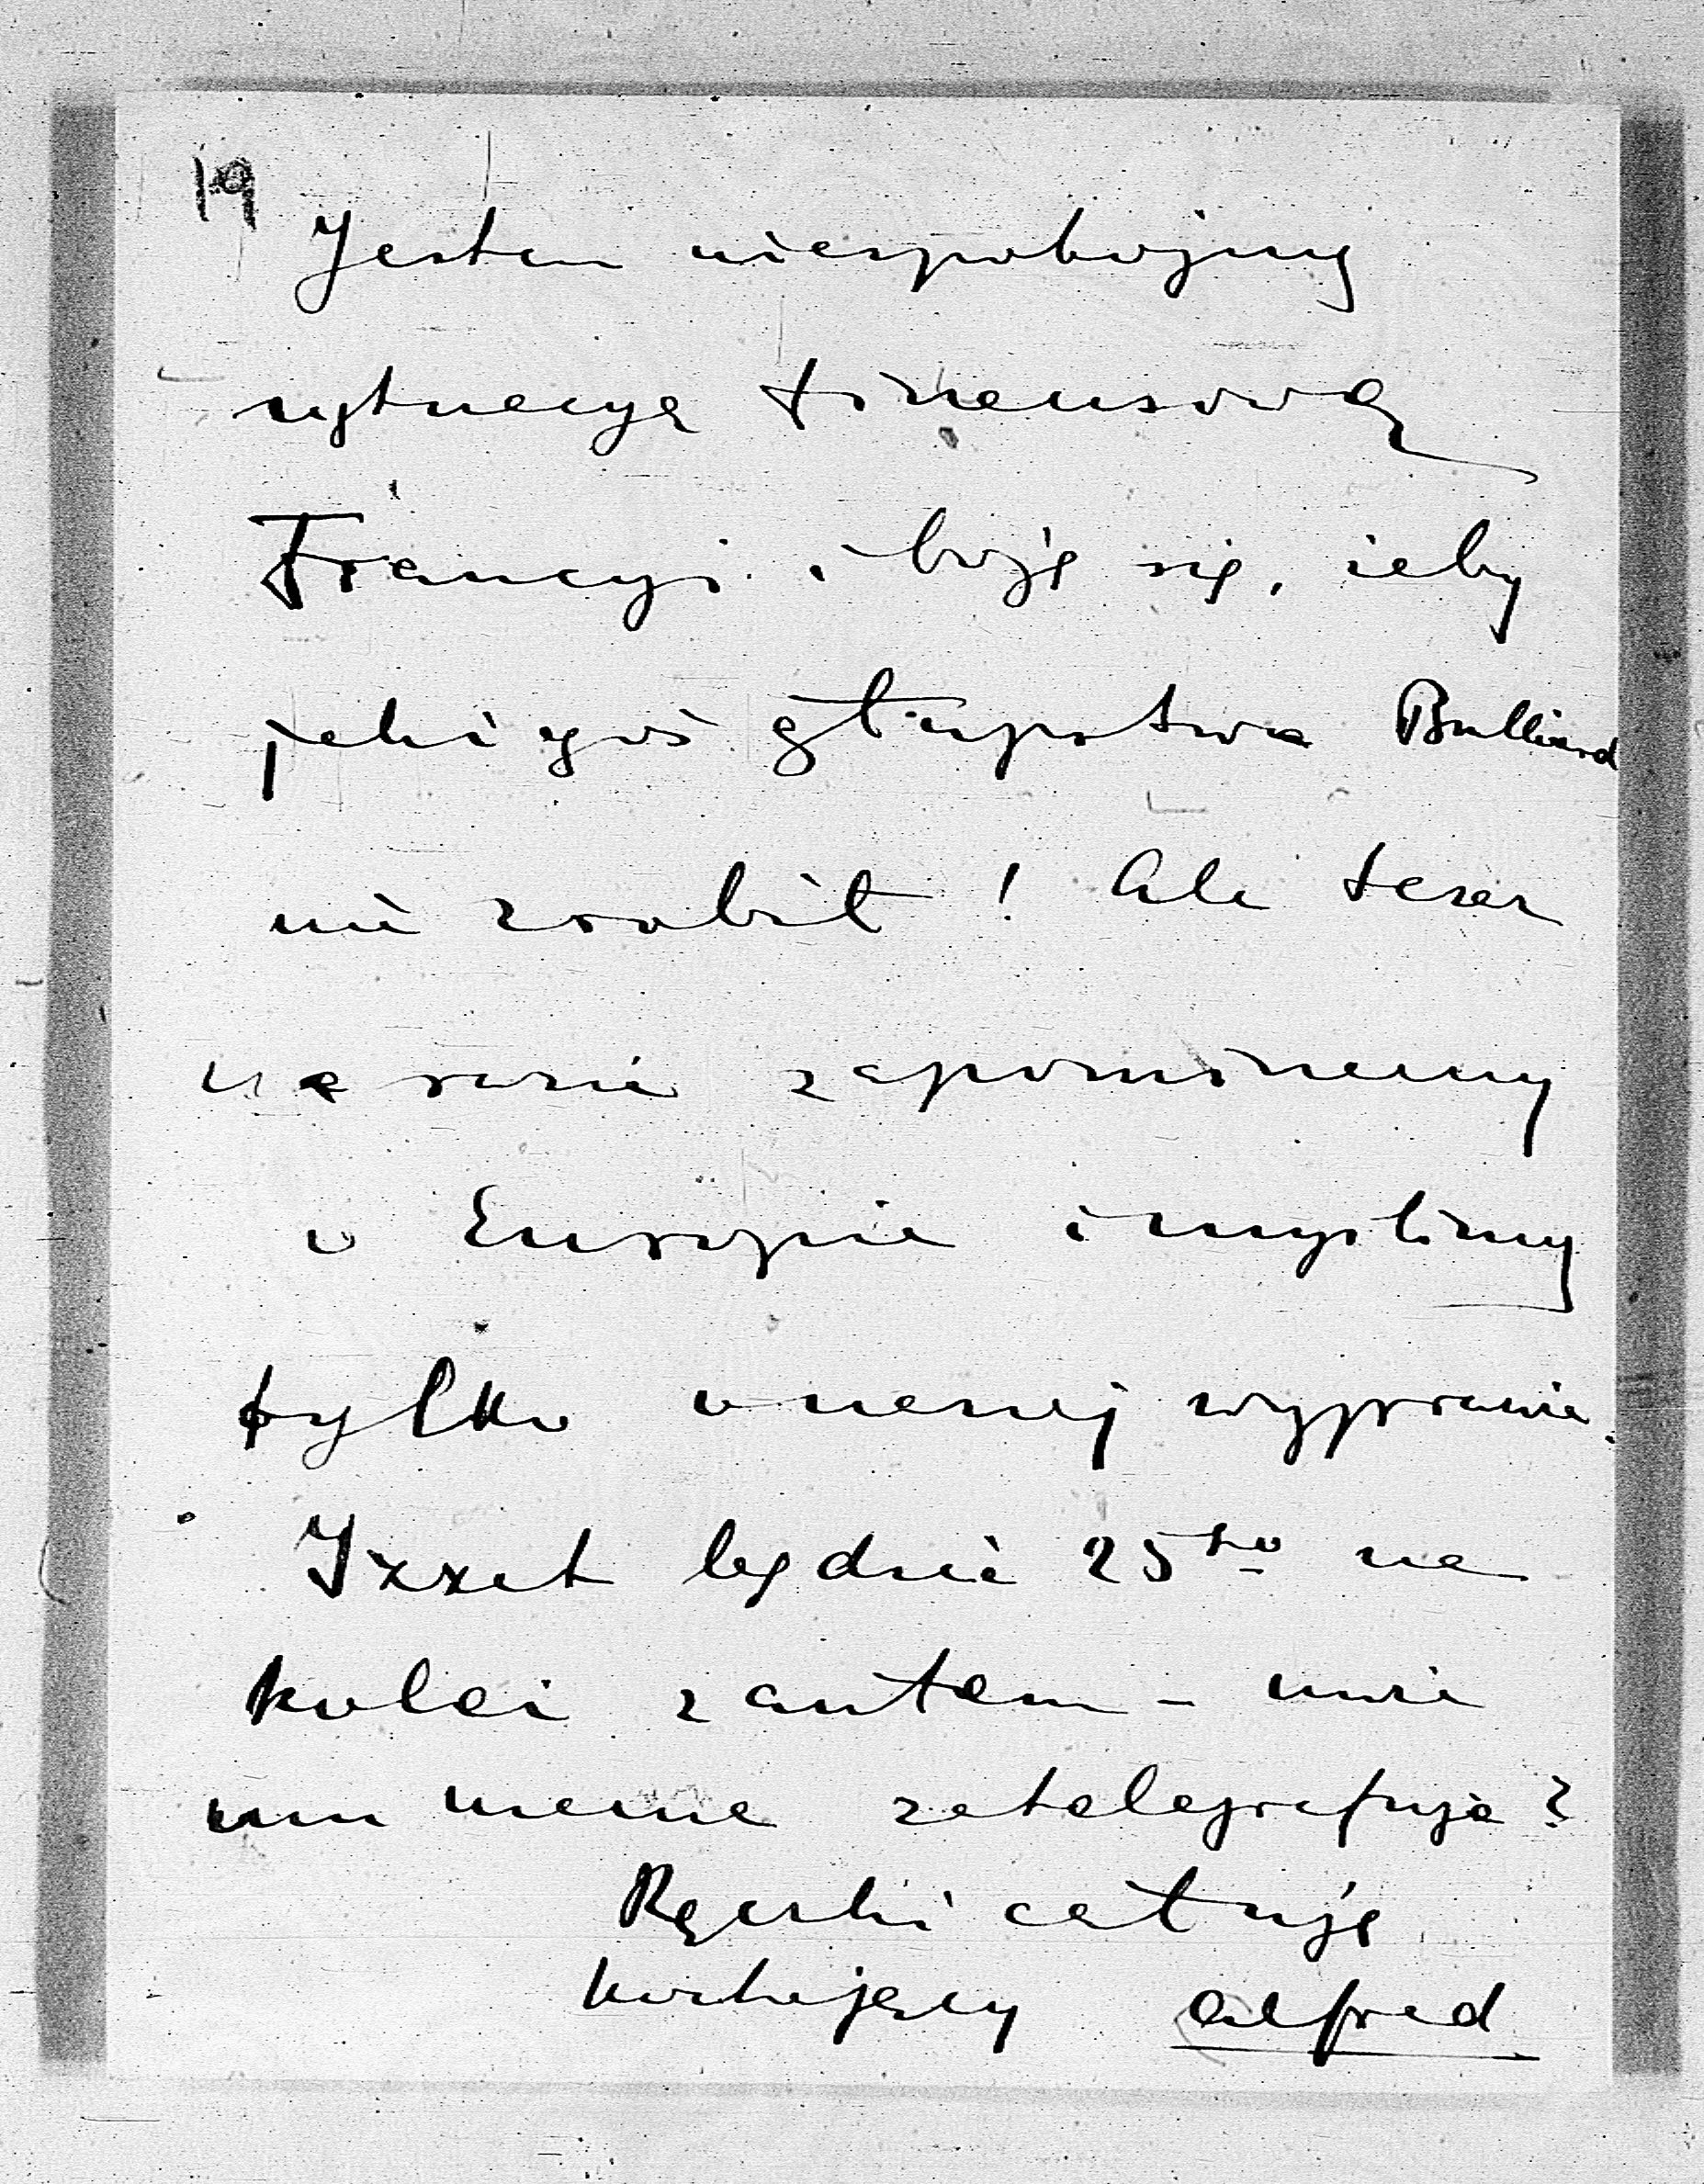 19
Jestem niespokojny
sytuacyą finansową
Francyi i boję się, żeby
jakiegoś głupstwa Bulliard
nie zrobił! Ale teraz
na razie zapominamy
o Europie i myślimy
tylko o naszej wyprawie.
Izzet będzie 25go na
kolei z autem – może
mu mama zatelegrafuje?
Rączki całuję
kochający Alfred